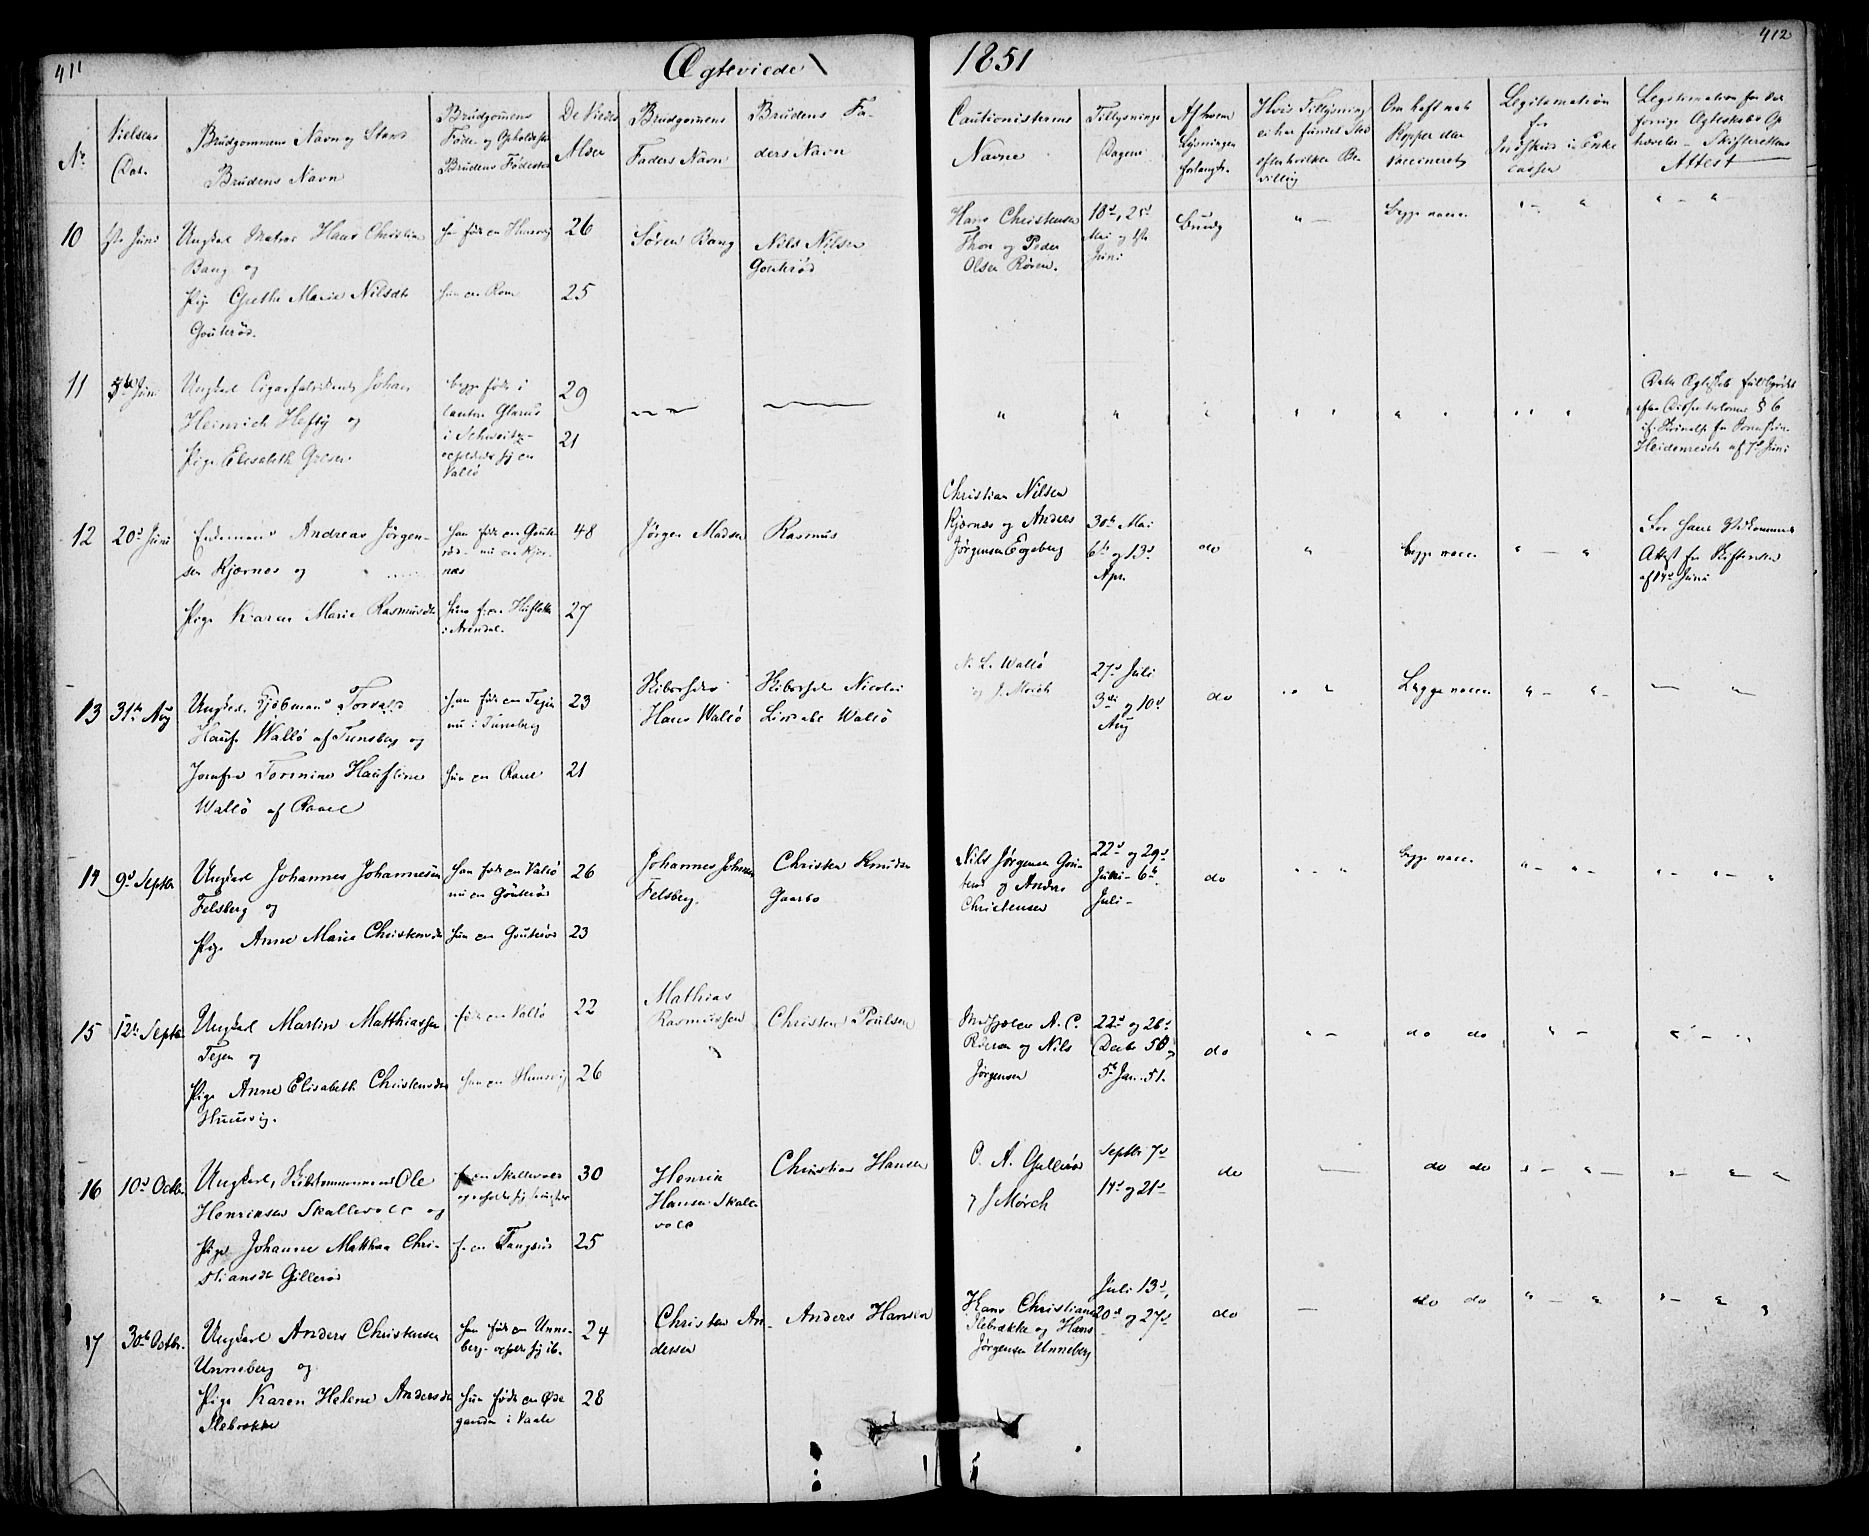 411
Ægteviede
1851
412
No
Vielsens
Dat.
Brudgommens Navn og Stand
Brudens Navn
Brudgomens
Føde- og Opholdssted
Brudens Fødested
De Viedes
Alder
Brudgomens
Faders Navn
Brudens Fa-
ders Navn
Cautionisternes
Navne
Tillysnings
Dagene
Af hvem
Lysningen
forlangtes
Hvis Tillysning
ei har fundet Sted
efter hvilken Be-
villing
Om haft nat.
Kopper eller
vaccineret
Legitimation
for
Indskud i Enke
cassen
Legitimation for det
forrige Ægteskabs Op
hævelse - Skifterettens
Attest
10
Ungkarl Matros Hans Christian
Bang og
Pige Grethe Marie Nilsdtr
Gouterød.
han født en Huusvig
hun en Rom
26
25
Søren Bang
Nils Nilsen
Gouterød
Hans Christensen
Thon og Peder
Olsen Røren.
18d, 25d
Mai og 1ste
Juni
Brudg
begge vacc.
11
5te Juni
Ungkarl Cigarfabrikant Johan
Heinrich Hefty og
Pige Elisabeth
begge føde i
Canton Glarus
i Schweitz-
opholder sig en
Vallø
29
21
Dette Ægteskab fuldbyrdet
efter Dissenterlovens § 6
Heidenreich af 7d Juni
12
20d Juni
Enkemand Andreas Jørgen-
sen Kjærnæs og
Pige Karen Marie Rasmusdtr
han født en Goute-
rød - nu en Kjær-
næs
hun f. en
i Arendal.
48
27
Jørgen Madsen
Rasmus
Christian Nilsen
Kjærnæs og Anders
Jørgensen Eogeberg
30te Mai
6te og 13d
Apr.
do
begge vacc.
For hans Vedkommende
Attest fra Skifteretten
af 14d Juni
13
31te Aug
Ungkarl Kjøbmand Torvald
Hauf. Wallø af Tunsberg og
Jomfru Tormine Haufline
Wallø af Ravel
han født en Tejen
nu i Tunsberg
hun en Ravel
23
21
Skibsreder
Hans Wallø
Skibsreder Nicolai
Wallø
N. L. Wallø
og J. Mørch
27d Juli
3die og 10d
Aug
do
begge vacc.
14
9d Septbr
Ungkarl Johannes Johannesen
Felsberg og
Pige Anne Marie Christensdtr
han født en Vallø
nu en Gouterød
hun en Gouterød
26
23
Johannes Johnsen
Felsberg.
Christen Knudsen
Gaarbo
Nils Jørgensen Gou-
terød og Anders
Christensen
22d og 29d
Juni - 6te
Juli -
do
begge vacc.
15
12te Septbr
Ungkarl Martin Matthiassen
Tejen og
Pige Anne Elisabeth Christensdtr
Huusvig.
født en Vallø
hun en Huusvig
22
26
Mathias
Rasmussen
Christen Poulsen
A. C.
Pedersen og Nils
Jørgensen
22d og 26d
Decbr 50 og
5te Jan. 51.
do
do do
16
10d Octbr.
Ungkarl, Skibstømmermand Ole
Henriksen Skallevold og
Pige Johanne Matthea Chri-
stiansdt Gillerød
f. en Skallevold
og opholder sig sammesteds
f. en Fangsrud
30
25
Henrik
Hansen Skalle
vold
Christian Hansen
O. A. Gullerød
og J Mørch
Septbr 7d
14d og 21d
do
do do
17
30te Octbr.
Ungkarl Anders Christensen
Unneberg og
Pige Karen Helene Andersdtr
Ilebrække
han født en Unne-
berg - opholder sig ib.
hun født en Øde
gaarden i Vaale
24
28
Christen An-
dersen
Anders Hansen
Hans Christians
Ilebrække og Hans
Jørgensen Unneberg
Juli 13d,
20d og 27d
do
do do